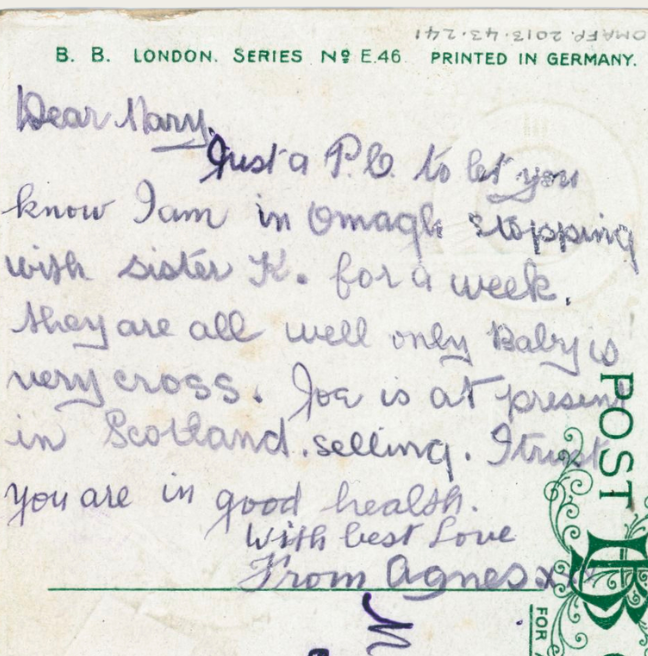 OMAFP. 2013.43.241
B. B. LONDON. SERIES Nº E.46. PRINTED IN GERMANY.
Dear Mary,
Just a P.C. to let you
know I am in Omagh stopping
with sister K. for a week.
they are all well only Baby is
very cross. Joe is at present
in Scotland. selling. I trust
you are in good health.
With best Love
From Agnes xx
POST
BB
FOR